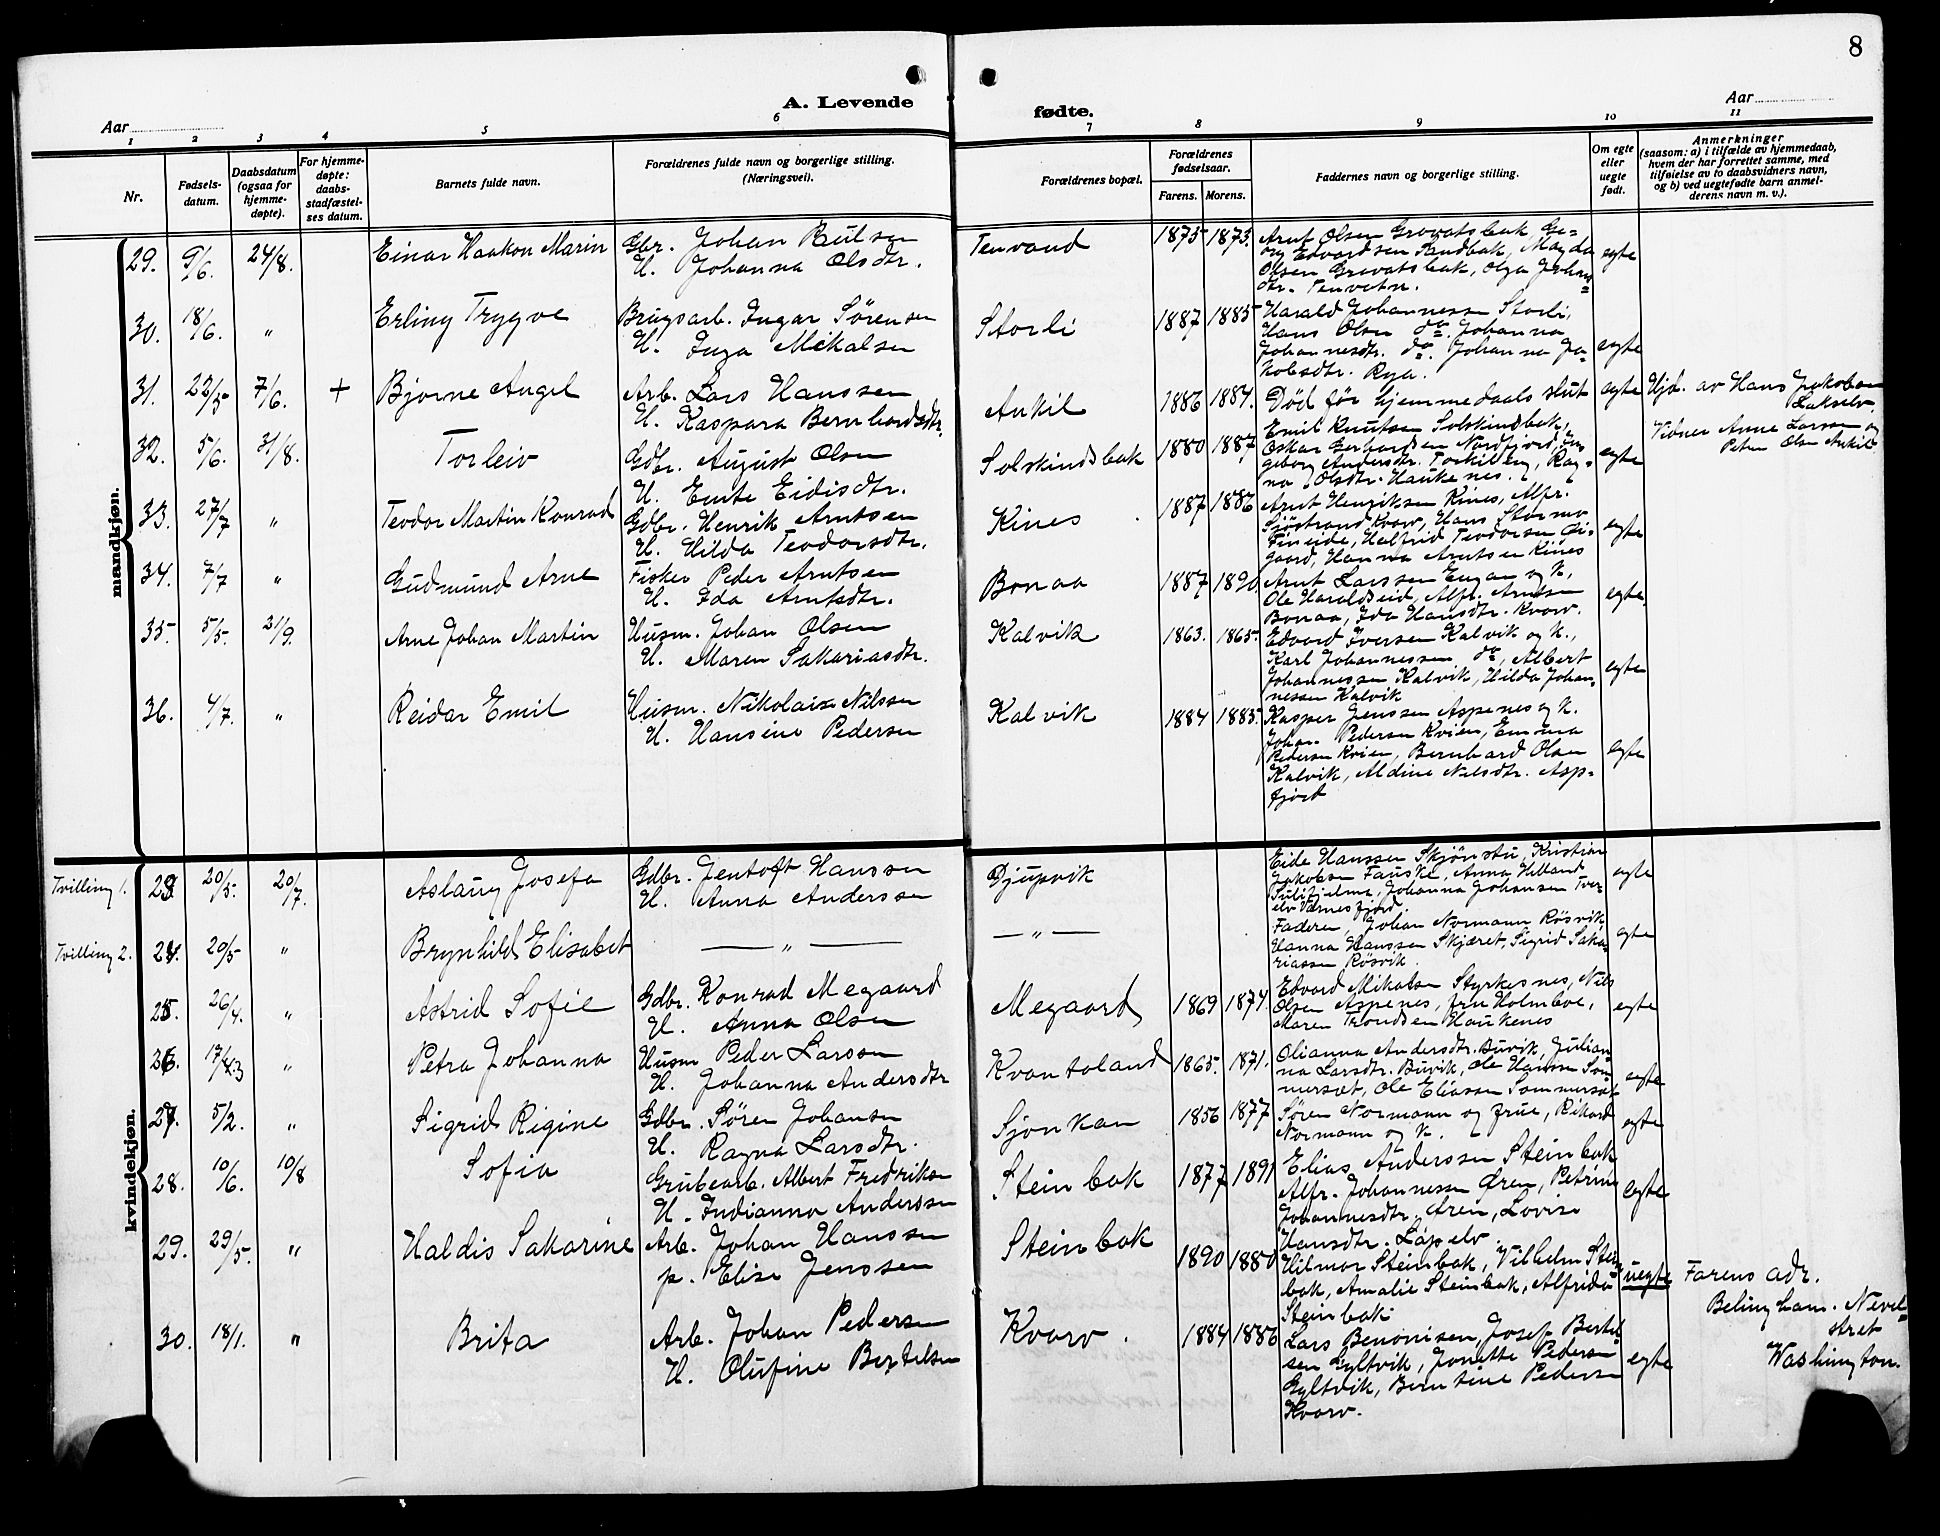 8
A. Levende
fødte.
Aar
Aar
1 2 3 4 5 6 7 8 9 10 11
Nr.
Fødsels-
datum.
Daabsdatum
(ogsaa for
hjemme-
døpte).
For hjemme-
døpte:
daabs-
stadfæstel-
ses datum.
Barnets fulde navn.
Forældrenes fulde navn og borgerlige stilling.
(Næringsvei).
Forældrenes bopæl.
Forældrenes
fødselsaar.
Farens. Morens.
Faddernes navn og borgerlige stilling.
Om egte
eller
uegte
født.
Anmerkninger
(saasom: a) i tilfælde av hjemmedaab,
hvem der har forrettet samme, med
tilføielse av to daabsvidners navn,
og b) ved uegtefødte barn anmel-
derens navn m. v.).
mandkjøn.
29. 9/6. 24/8. Einar Haakon Marin
Gbr. Johan Bulsen
H. Johanna Olsdtr.
Tenvand 1875 1873.
Arnt Olsen Grovatsbak, Ge-
org Edvardsen Sandbak, Magda
Olsen Grovatsbak, Olga Johan-
dtr. Tenvatn.
egte
30. 18/6. " Erling Trygve
Brugsarb. Ingar Sørensen
H. Inga Mikalsen
Storli 1887 1885
Harald Johannessen Storli,
Hans Olsen do. Johanna
Johannesdtr. do. Johanna Ja-
kobsdtr. Rya.
egte
31. 22/5 7/6. + Bjarne Angel
Arb. Lars Hanssen
H. Kaspara Bernhardsdtr.
Ankil 1886 1884.
Død før hjemmedaabs slut
egte
Hjd. av Hans Jakobsen
Lakselv.
Vidner Anne Larssen og
Petra Olsen Ankil
32. 5/6. 31/8. Torleiv
Gdbr. August Olsen
H. Emte Eidisdtr.
Solskindsbak 1880 1887
Emil Knutsen Solskindbak,
Oskar Gerhardsen Nordfjord, In-
geborg Andersdtr. Torkilleng, Rag-
na Olsdtr. Haukenes.
egte
33. 27/7 " Teodor Martin Konrad
Gdbr. Henrik Arntsen
H. Hilda Teodorsdtr.
Kines 1887 1886
Arnt Henriksen Kines, Alfr.
Sjøstrand Kvarv, Hans Stormo
Fineide, Halfrid Teodorsen Di-
gaard, Hanna Arntsen Kines
egte
34. 7/7 " Gudmund Arne
Fisker Peder Arntsen
H. Ida Arntsdtr.
Bonaa 1887 1890.
Arnt Larssen Engan og k,
Ole Haraldseid, Alfr. Arntsen
Bonaa, Ida Hansdtr. Kvarv.
egte.
35. 5/5 21/9. Arne Johan Martin
Husm. Johan Olsen
H. Maren Sakariasdtr.
Kalvik 1863. 1865.
Edvard Iversen Kalvik og k.,
Karl Johannessen do, Albert
Johannessen Kalvik, Hilda Johan-
nessen Kalvik
egte
36. 4/7. " Reidar Emil
Husm. Nikolai Nilssen
H. Hansine Pedersen
Kalvik 1884 1885.
Kasper Jenssen Aspenes og k.
Johan Pedersen Kvien, Emma
Pedersen Kvien, Bernhard Olsen
Kalvik, Aldine Nilsdtr. Asp-
fjord
egte
kvindekjøn.
Tvilling 1. 23. 20/5. 20/7. Aslaug Josefa
Gdbr. Jentoft Hanssen
H. Anna Anderssen
Djupvik
Eide Hanssen Skjønstu, Kristian
Jakobsen Fauske, Anna Helland
Sulitjelma, Johanna Johansen Tver-
elv Værnesfjord.
egte
Tvilling 2. 24. 20/5 " Brynhild Elisabet
— " —
— " —
Faderen, Johan Normann Røsvik
Hanna Hanssen Skjæret, Sigrid Saka-
riassen Røsvik.
egte
25. 26/4. " Astrid Sofie
Gdbr. Konrad Megaard
H. Anna Olsen
Megaard 1869 1874.
Edvard Mikalsen Styrkesnes, Nils
Olsen Aspenes, fru Holmboe,
Maren Trondsen Haukenes
egte
26. " Petra Johanna
Husm Peder Larssen
H. Johanna Andersdtr
Kvantoland 1865. 1871.
Olianna Andersdtr. Buvik, Julian-
na Larsdtr. Buvik, Ole Hanssen Som-
merset, Ole Eliassen Sommerset
egte
27. 5/2. " Sigrid Rigine
Gdbr. Søren Johansen
H. Ragna Larsdtr.
Sjønkan 1856 1877
Søren Normann og frue, Rikard
Normann og k.
egte
28. 10/6. 10/8 Sofia
Grubearb. Albert Fredriksen
H. Indianna Anderssen
Steinbak 1877 1891
Elias Anderssen Steinbak
Alfr. Johannessen Øren, Petrine
Johannesdtr. Øren, Lovise
Hansdtr. Lapelv.
egte
29. 29/5. " Haldis Sakarine
Arb. Johan Hanssen
p. Elise Jenssen
Steinbak 1890 1880
Hilmar Steinbak, Vilhelm Stein-
bak, Amalie Steinbak, Alfrida
Steinbak
uegte
Farens adr.
Belingham. Nevel-
stret
Washington.
30. 18/1. " Brita
Arb. Johan Pedersen
H. Olufine Bertelsen
Kvarv. 1884 1886
Lars Benonisen, Josef Bertel-
sen Gyltvik, Jonette Pedersen
Gyltvik, Berntine Pedersen
Kvarv.
egte